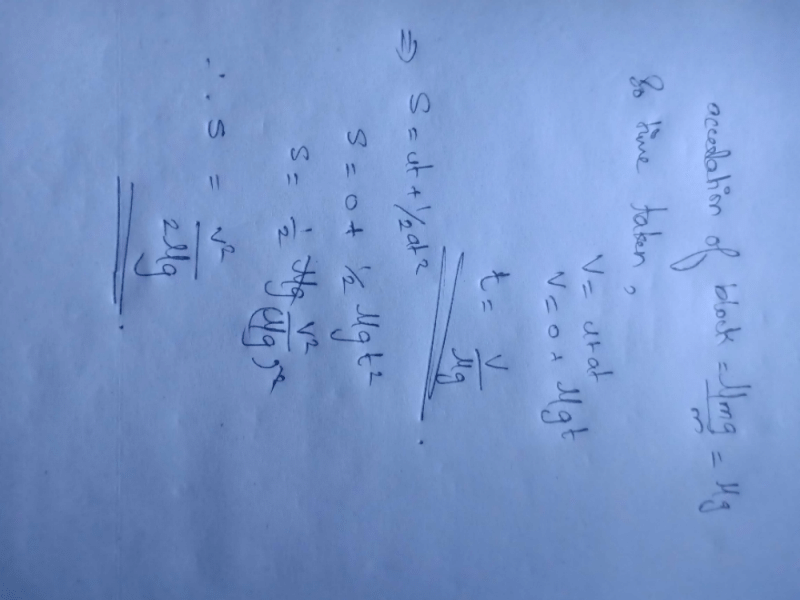 accelation of block = μmg/m = μg
So time taken,
V = u+at
V = 0 + μgt
t = V/μg
⇒ S = ut + 1/2 at²
S = 0 + 1/2 μgt²
S = 1/2 μg V²/(μg)²
∴ S = V²/2μg